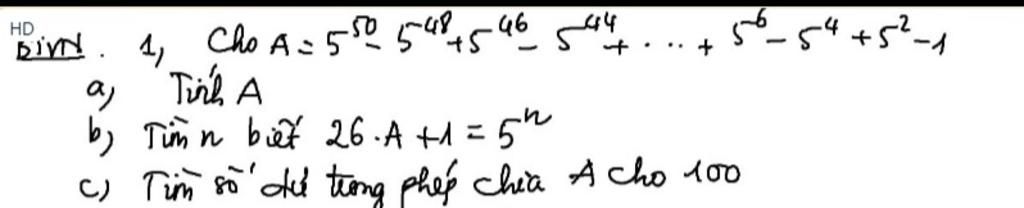 HD
BTVN. 1, Cho A = 5^50 - 5^48 + 5^46 - 5^44 + ... + 5^6 - 5^4 + 5^2 - 1
a, Tính A
b, Tìm n biết 26.A + 1 = 5^n
c, Tìm số dư trong phép chia A cho 100